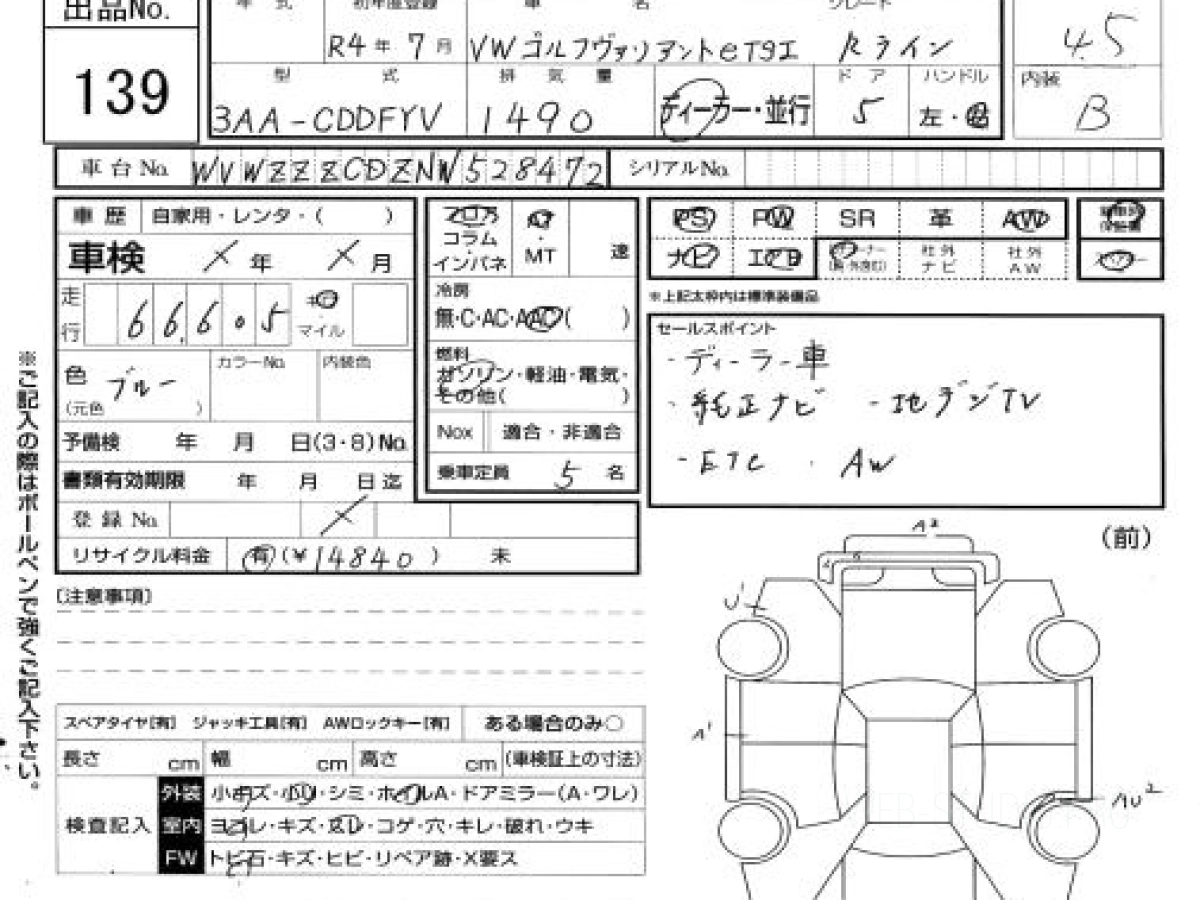 出品No. 年 式 初年度登録 車 名 グレード
R4年 7月 VWゴルフヴァリアントeTSI Rライン 4.5
139 型 式 排 気 量 ド ア ハンドル 内装
3AA-CDDFYV 1490 ディーカー・並行 5 左・右 B
車台No. WVWZZZCDZNW528472 シリアルNo.
車歴 自家用・レンタ・( )
車検 × 年 × 月
走行 66,605 キロ マイル
色 ブルー カラーNo. 内装色
(元色 )
予備検 年 月 日(3・8)No.
書類有効期限 年 月 日迄
登録No. ×
リサイクル料金 有(¥14840) 未
フロア AT
コラム ・ 速
インパネ MT
冷房
無・C・AC・AAC( )
燃料
ガソリン・軽油・電気・
その他( )
Nox 適合・非適合
乗車定員 5 名
PS PW SR 革 AW
ナビ エアB 社外ナビ 社外AW
※上記太枠内は標準装備品
セールスポイント
・ディーラー車
・純正ナビ -地デジTV
-ETC ・AW
※ご記入の際はボールペンで強くご記入下さい。
(注意事項)
スペアタイヤ[有] ジャッキ工具[有] AWロックキー[有] ある場合のみ○
長さ cm 幅 cm 高さ cm (車検証上の寸法)
検査記入
外装 小キズ・小凹・シミ・ホイルA・ドアミラー(A・ワレ)
室内 ヨゴレ・キズ・スレ・コゲ・穴・キレ・破れ・ウキ
FW トビ石・キズ・ヒビ・リペア跡・X要ス
(前)
A2
U1
A1
AU2